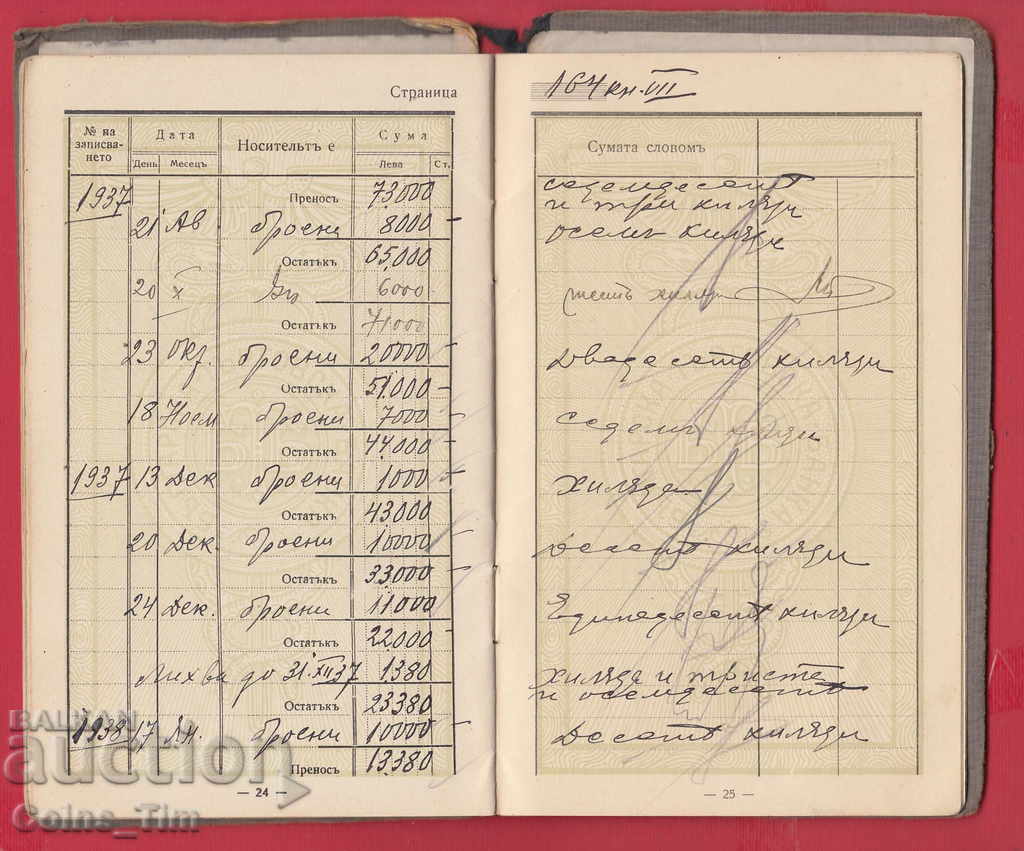 Страница
164 кн. VII
№ на записва-нето
Дата
День
Месецъ
Носительтъ е
Сума
Лева
Ст.
Сумата словомъ
1937 Преносъ 73.000 седемдесеть и три хиляди
21 Ав броени 8000 осемь хиляди
Остатъкъ 65.000
20 X 6000 шесть хиляди
Остатъкъ 71000
23 Окт. броени 20000 Двадесеть хиляди
Остатъкъ 51.000
18 Ноем броени 7000 седемь хиляди
Остатъкъ 44.000
1937 13 Дек броени 1000 хиляда
Остатъкъ 43000
20 Дек. броени 10000 Десеть хиляди
Остатъкъ 33.000
24 Дек. броени 11000 Единадесеть хиляди
Остатъкъ 22.000
Лихва до 31.XII.37 1380 хиляда и тристе и осемдесеть
Остатъкъ 23.380
1938 17 Ян. броени 10000 Десеть хиляди
Преносъ 13.380
— 24 —
— 25 —
BALKAN
auction
Coins_Tim